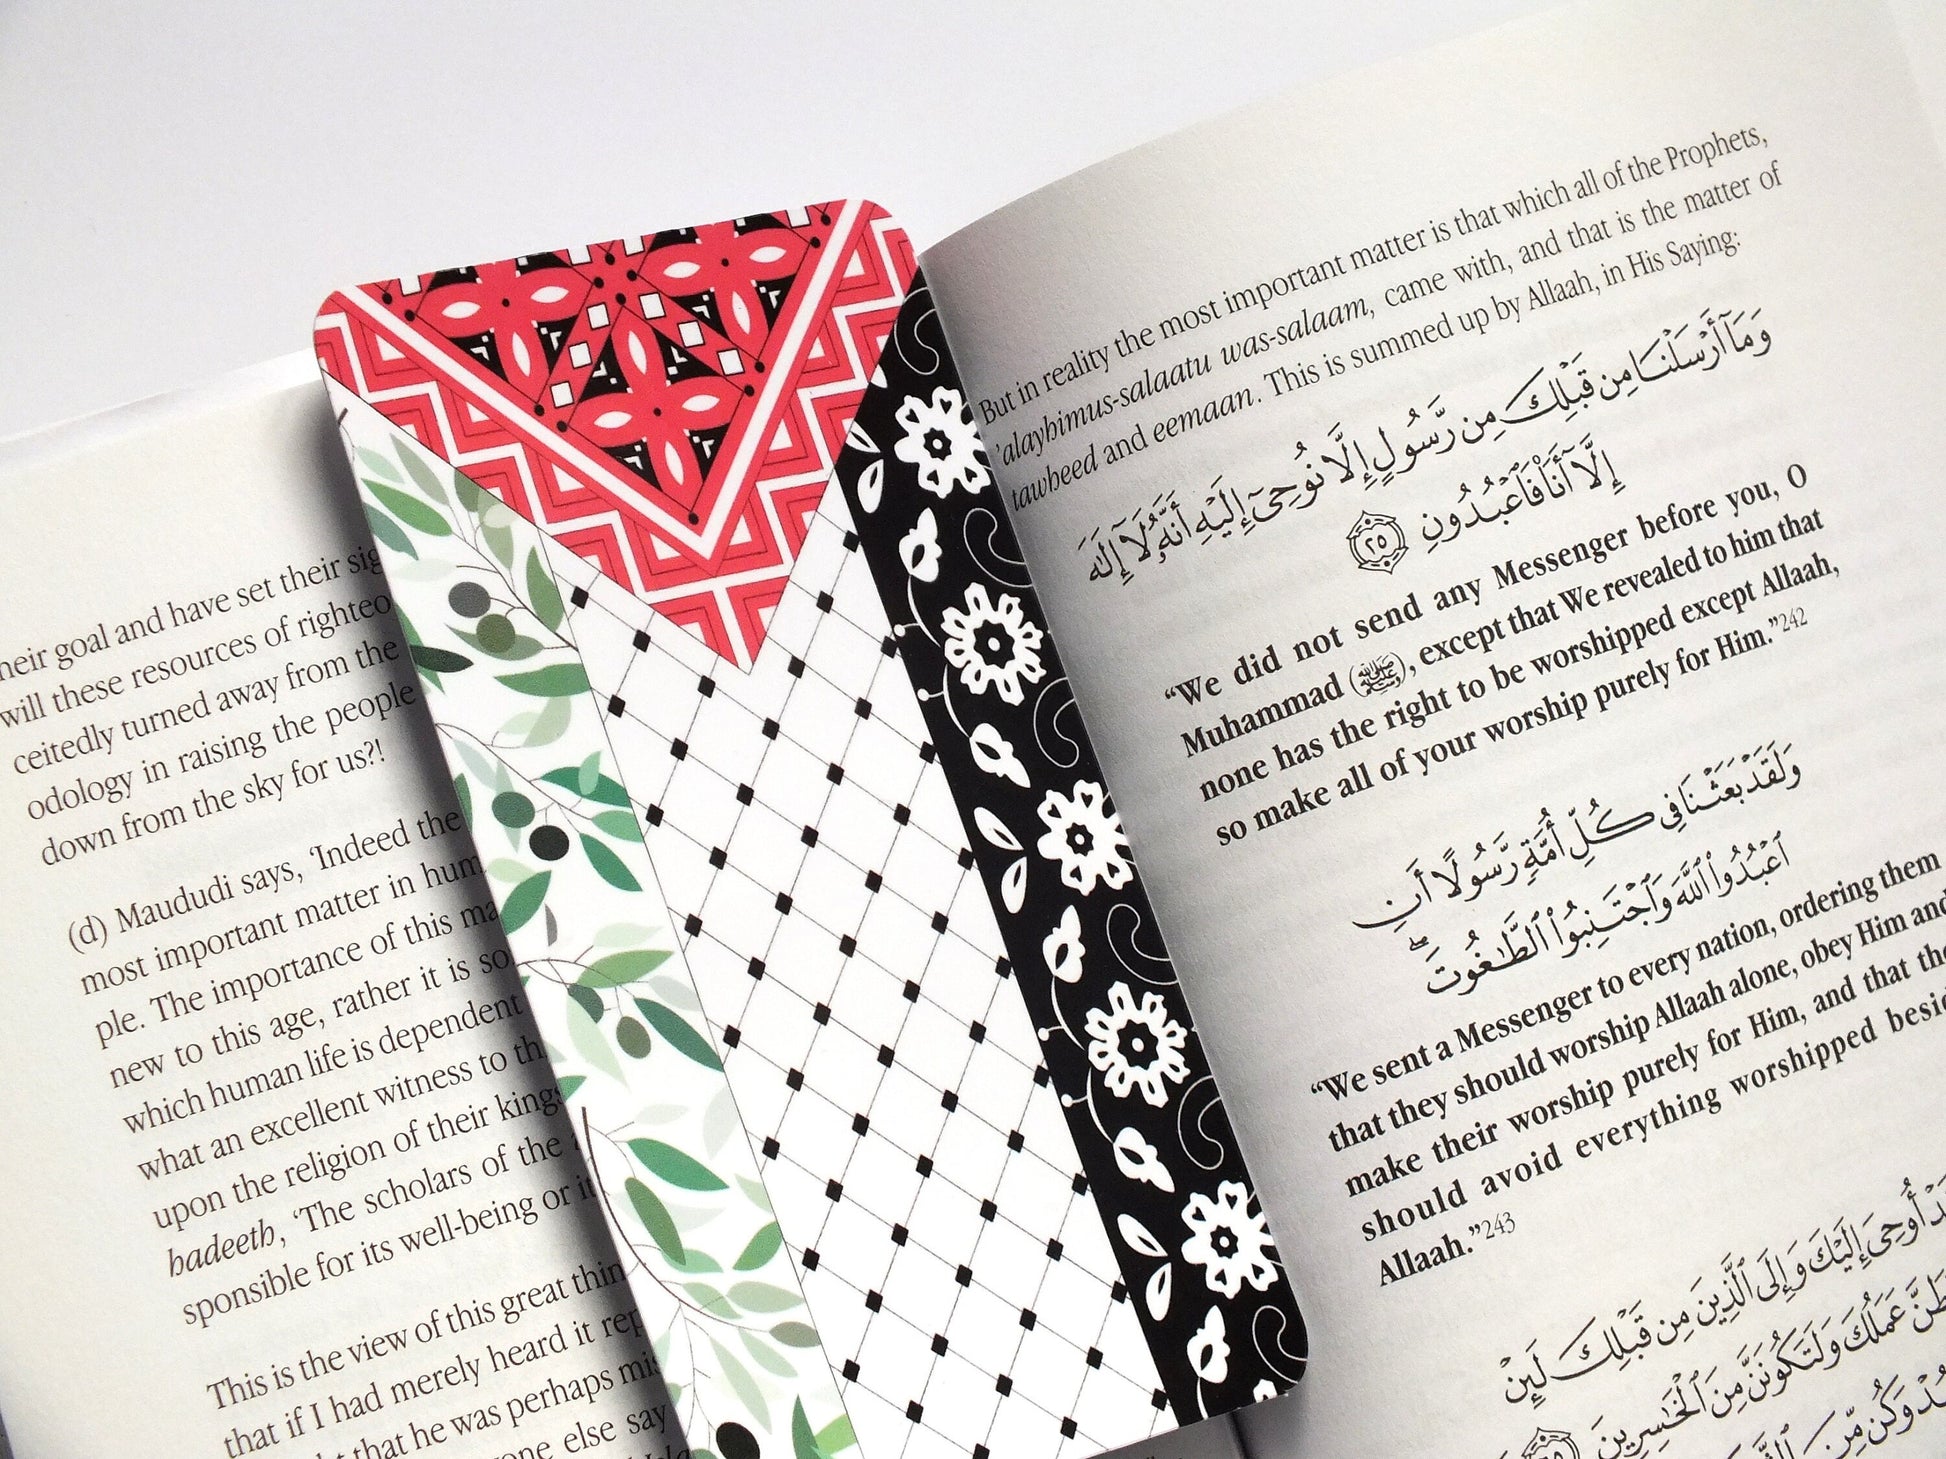 heir goal and have set their sig
will these resources of righteo
ceitedly turned away from the
odology in raising the people
down from the sky for us?!
(d) Maududi says, ‘Indeed the
most important matter in hum
ple. The importance of this ma
new to this age, rather it is so
which human life is dependent
what an excellent witness to th
upon the religion of their kings
hadeeth, ‘The scholars of the
sponsible for its well-being or it
This is the view of this great thin
that if I had merely heard it rep
that he was perhaps mis
one else say
But in reality the most important matter is that which all of the Prophets,
’alayhimus-salaatu was-salaam, came with, and that is the matter of
tawheed and eemaan. This is summed up by Allaah, in His Saying:
وَمَآ أَرْسَلْنَا مِن قَبْلِكَ مِن رَّسُولٍ إِلَّا نُوحِىٓ إِلَيْهِ أَنَّهُۥ لَآ إِلَٰهَ
إِلَّآ أَنَا۠ فَٱعْبُدُونِ ٢٥
“We did not send any Messenger before you, O
Muhammad (ﷺ), except that We revealed to him that
none has the right to be worshipped except Allaah,
so make all of your worship purely for Him.”242
وَلَقَدْ بَعَثْنَا فِى كُلِّ أُمَّةٍ رَّسُولًا أَنِ
ٱعْبُدُوا۟ ٱللَّهَ وَٱجْتَنِبُوا۟ ٱلطَّٰغُوتَ ۖ
“We sent a Messenger to every nation, ordering them
that they should worship Allaah alone, obey Him and
make their worship purely for Him, and that the
should avoid everything worshipped besid
Allaah.”243
أُوحِىَ إِلَيْكَ وَإِلَى ٱلَّذِينَ مِن قَبْلِكَ لَئِنْ
عَمَلُكَ وَلَتَكُونَنَّ مِنَ ٱلْخَٰسِرِينَ
وَكُن مِّنَ